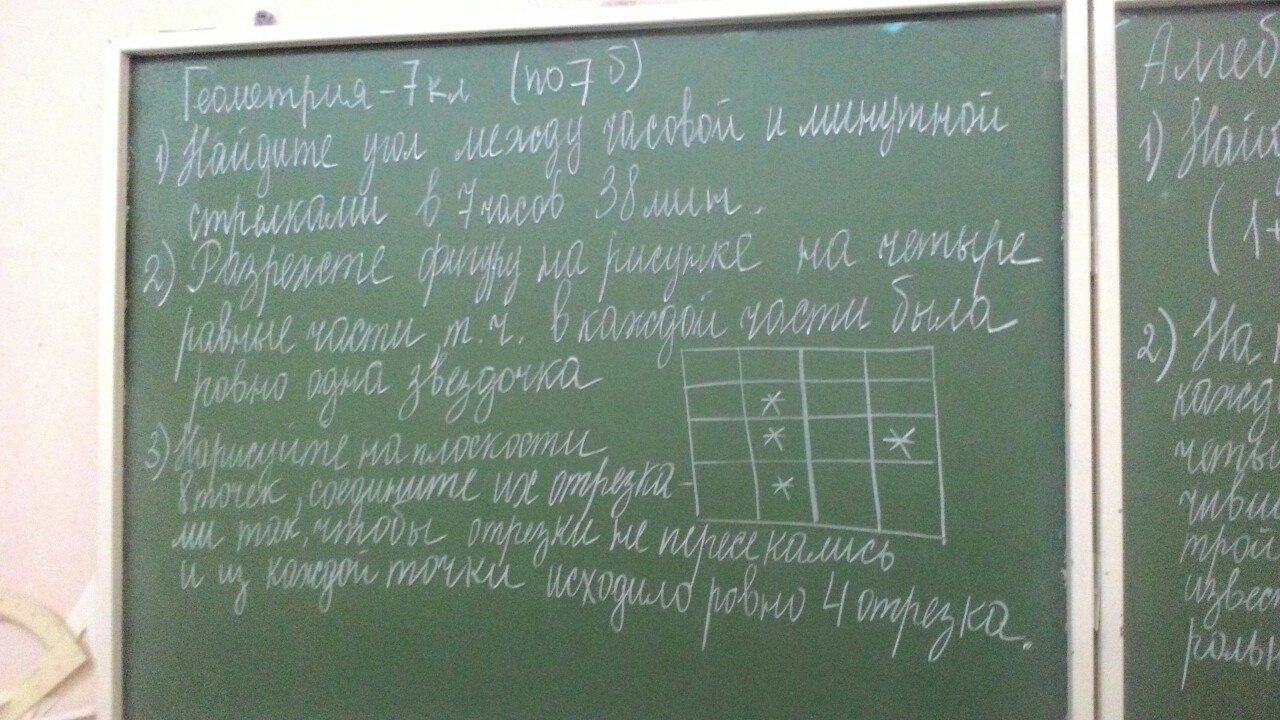 Геометрия - 7 кл (по 7 б)
1) Найдите угол между часовой и минутной
стрелками в 7 часов 38 мин.
2) Разрежьте фигуру на рисунке на четыре
равные части т.ч. в каждой части была
ровно одна звездочка
3) Нарисуйте на плоскости
8 точек, соедините их отрезка-
ми так, чтобы отрезки не пересекались
и из каждой точки исходило ровно 4 отрезка.
Алгеб
1) Най
(1+
2) На
кажд
четы
чиви
трой
извес
роль